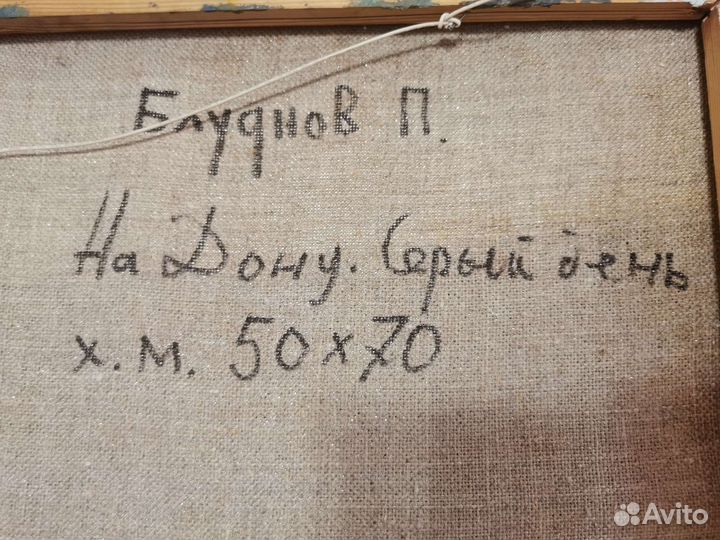 Блуднов П.
На Дону. Серый день
х.м. 50х70
Avito